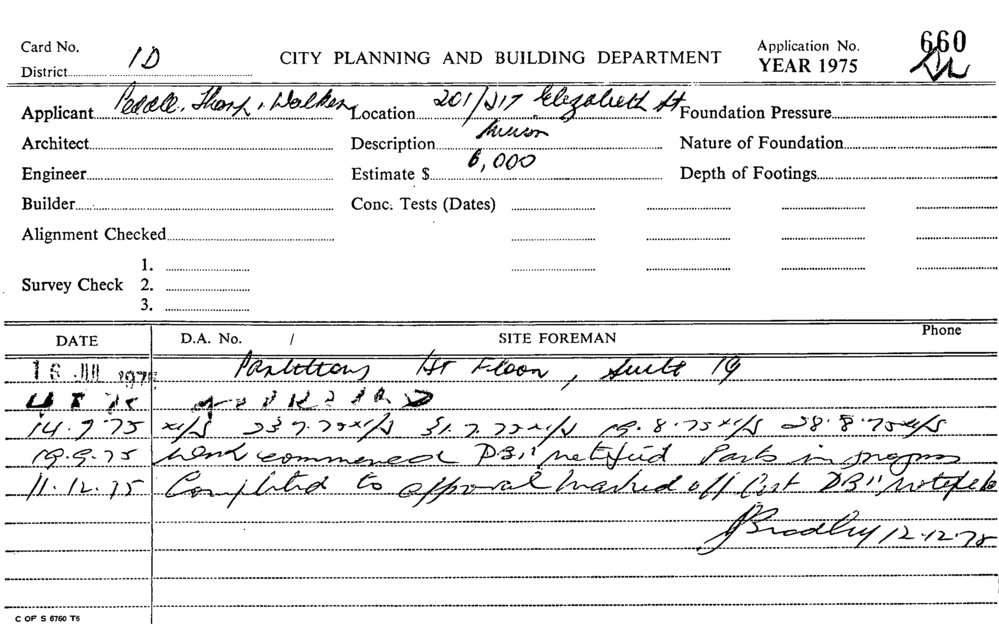 Card No. 1D CITY PLANNING AND BUILDING DEPARTMENT Application No. 660
District YEAR 1975
Applicant Peddle, Thorp, Walker Location 201/217 Elizabeth St Foundation Pressure
Architect Description Nature of Foundation
Engineer Estimate $ 6,000 Depth of Footings
Builder Conc. Tests (Dates)
Alignment Checked
Survey Check 1.
2.
3.
DATE D.A. No. / SITE FOREMAN Phone
16 JUL 1975 Partitions 1st Floor, Suite 19
14.7.75 23.7.75 31.7.75 19.8.75 28.8.75
19.9.75 Work commenced DBII notified Parts in progress
11.12.75 Completed to approval marked off Cert DBII
Bradley 12.12.75
C OF S 6760 T6